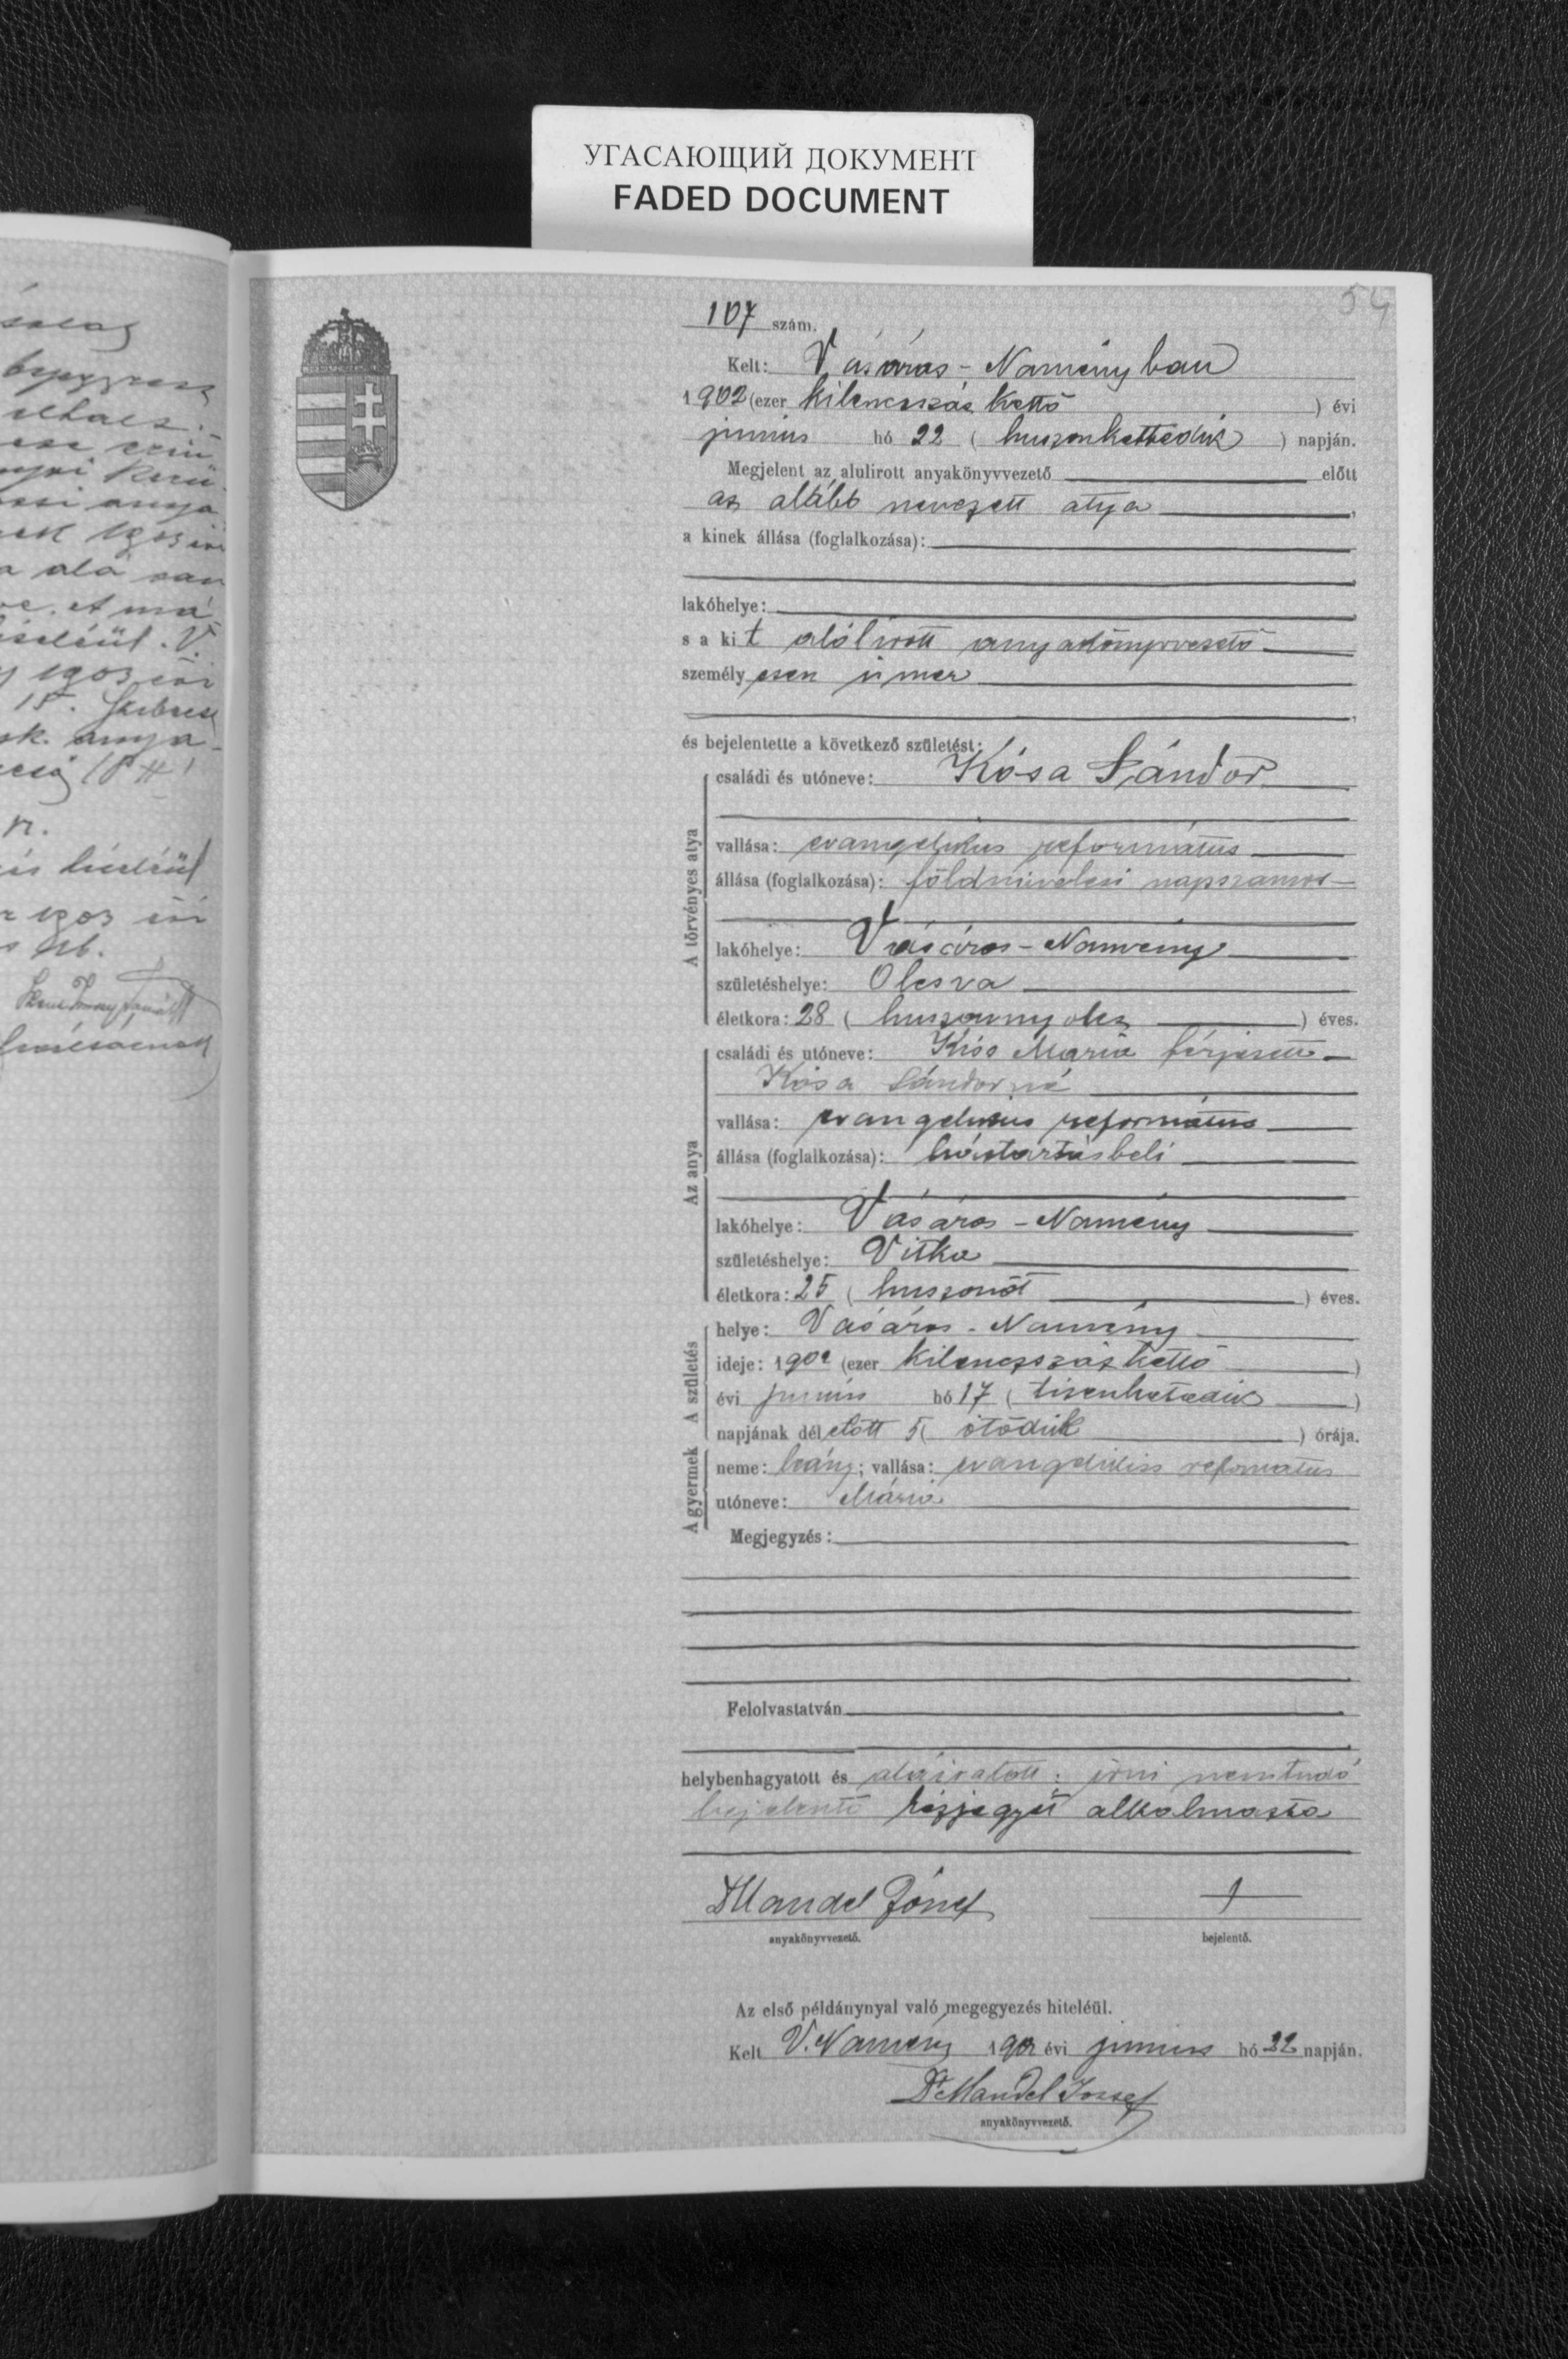 УГАСАЮЩИЙ ДОКУМЕНТ
FADED DOCUMENT
54
107 szám.
Kelt: Vásáros-Naményban
1902 (ezer kilenczszáz kettő ) évi
junius hó 22 ( huszonkettedik ) napján.
Megjelent az alulirott anyakönyvvezető előtt
az alább nevezett atya ,
a kinek állása (foglalkozása):
lakóhelye:
s a kit alólirott anyakönyvvezető
személyesen ismer
és bejelentette a következő születést:
A törvényes atya
családi és utóneve: Kósa Sándor
vallása: evangelikus református
állása (foglalkozása): földmivelesi napszamos
lakóhelye: Vásáros-Namény
születéshelye: Olcsva
életkora: 28 ( huszonnyolcz ) éves.
Az anya
családi és utóneve: Kiss Mária férjezett
Kósa Sándorné
vallása: evangelikus református
állása (foglalkozása): háztartásbeli
lakóhelye: Vásáros-Namény
születéshelye: Vitka
életkora: 25 ( huszonöt ) éves.
A születés
helye: Vásáros-Namény
ideje: 1902 (ezer kilenczszáz kettő )
évi junius hó 17 ( tizenhetedik )
napjának délelőtt 5 ( ötödik ) órája.
A gyermek
neme: leány; vallása: evangelikus református
utóneve: Mária
Megjegyzés:
Felolvastatván
helybenhagyatott és aláiratott; irni nemtudó
bejelentő kézjegyét alkalmazta
Dr Mandel József +
anyakönyvvezető. bejelentő.
Az első példánynyal való megegyezés hiteléül.
Kelt V. Namény 1902 évi junius hó 22 napján.
Dr Mandel József
anyakönyvvezető.